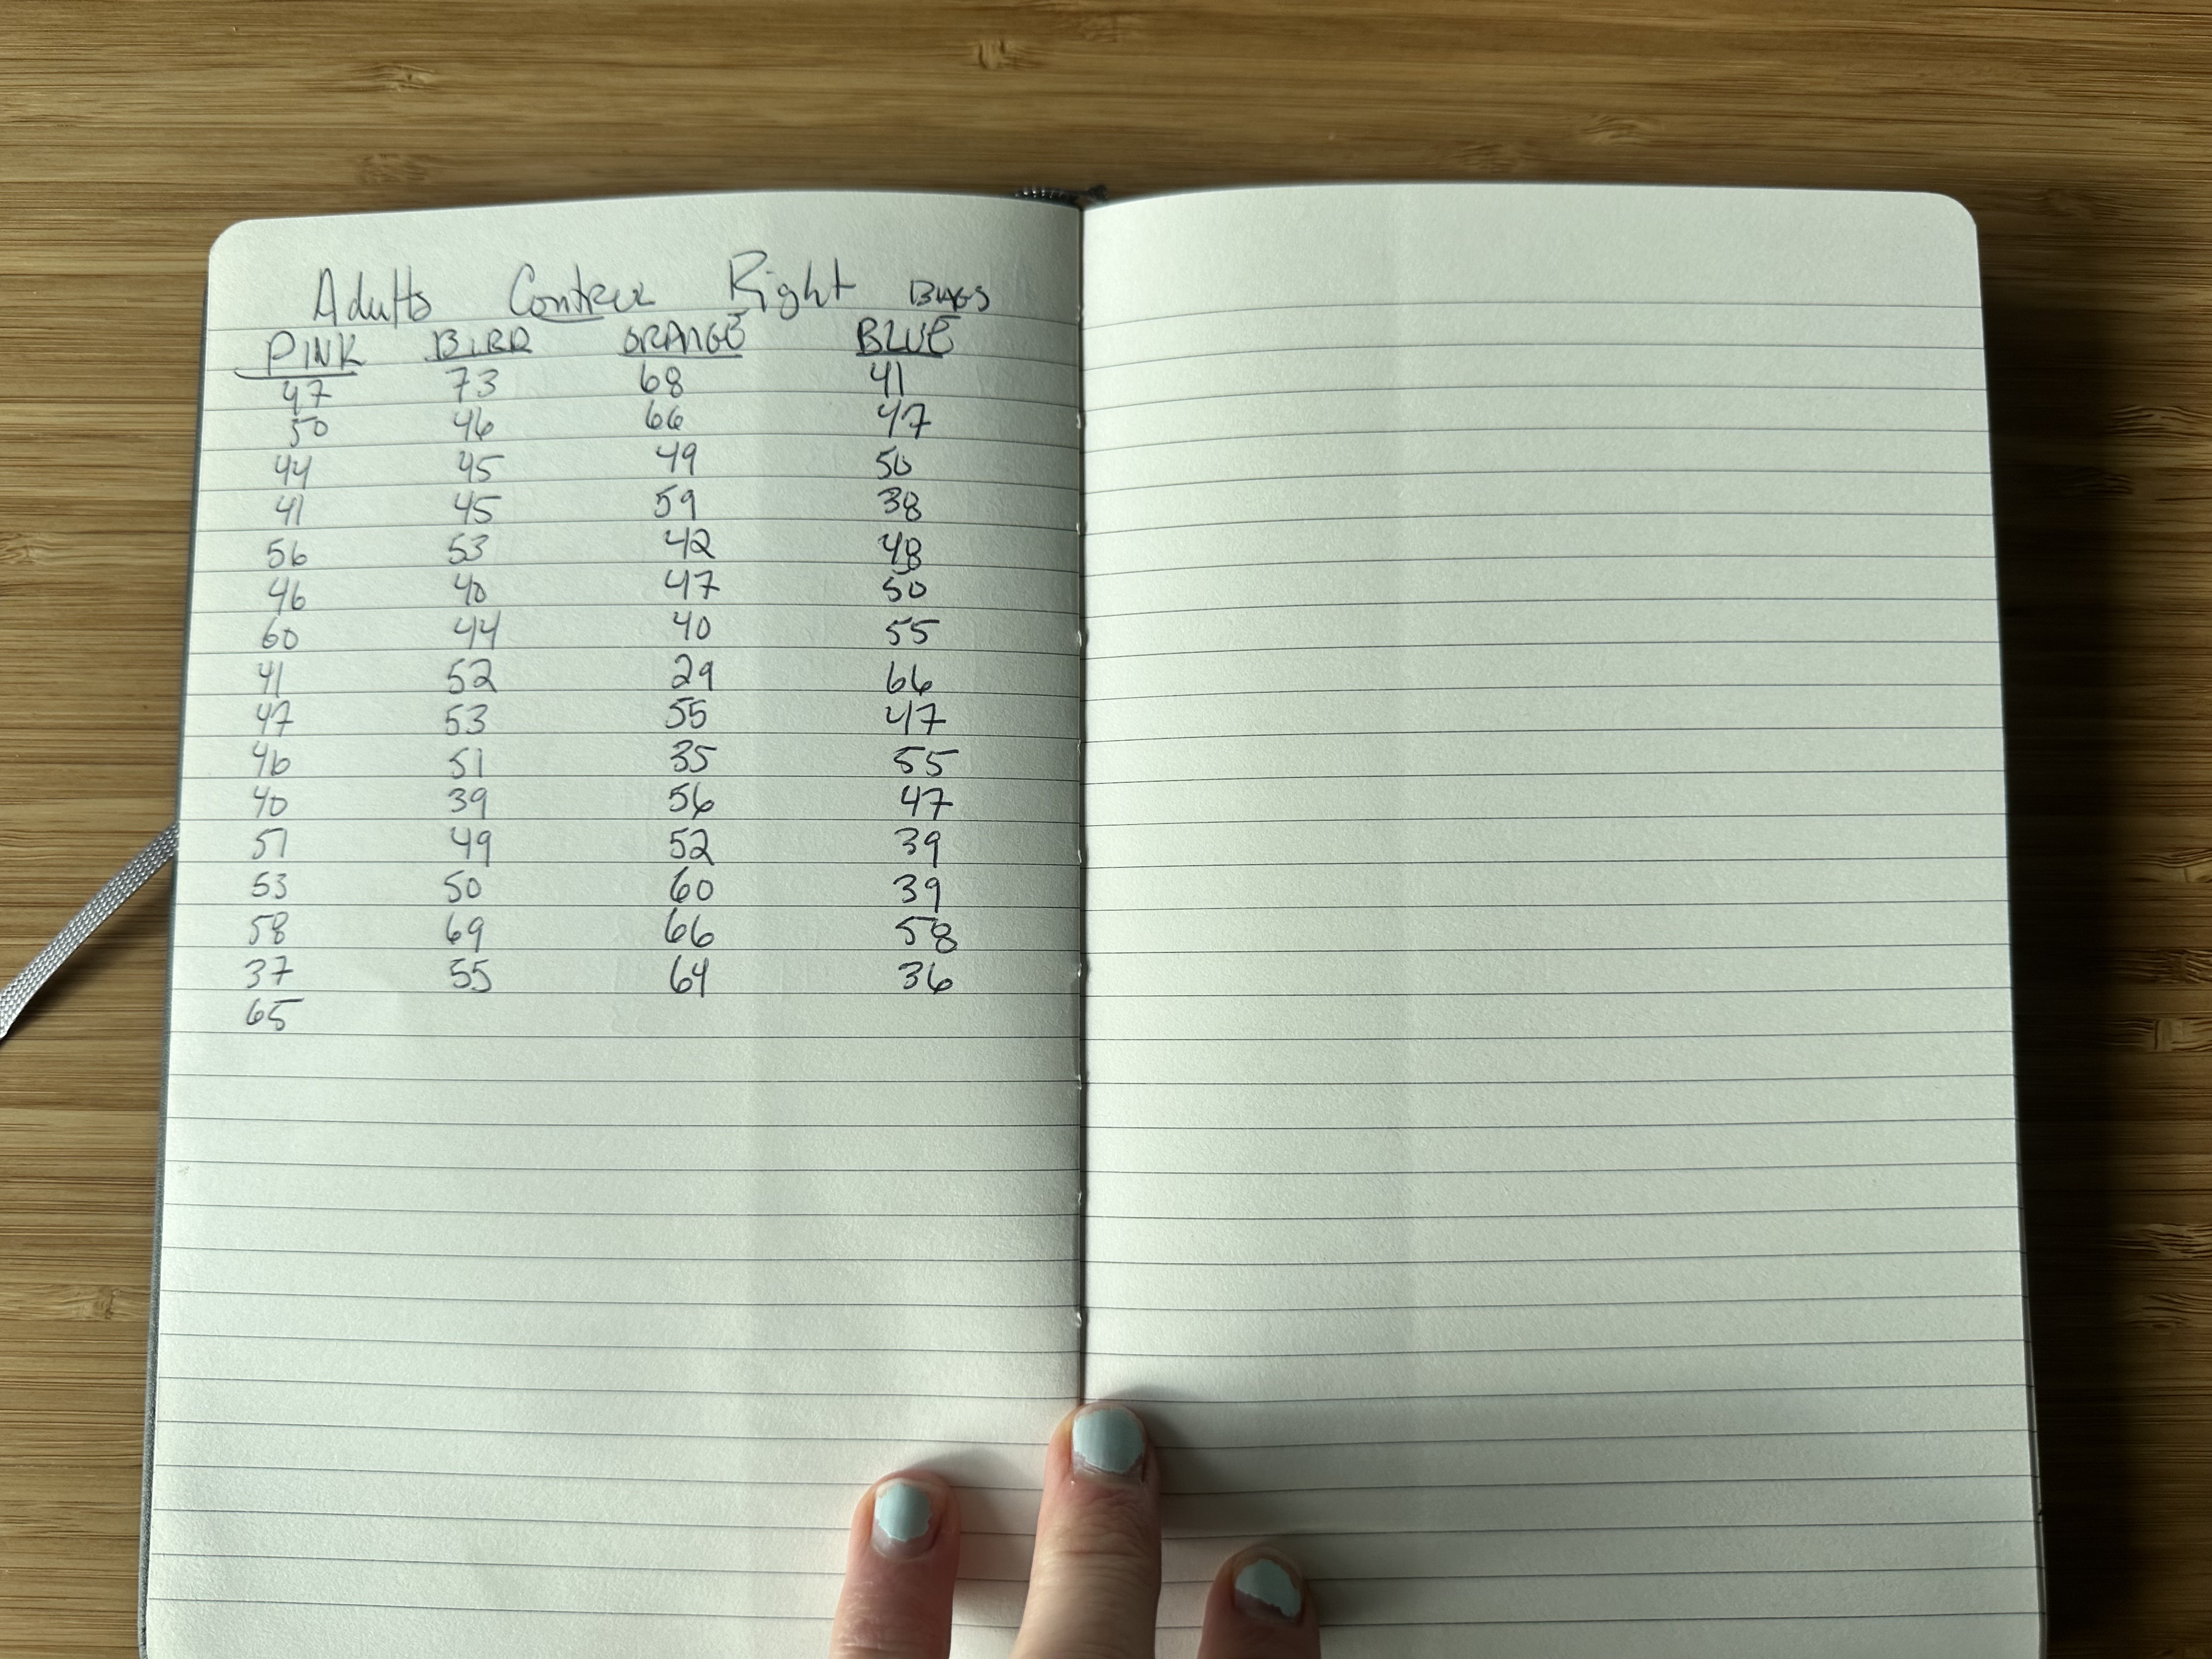 Adults Right BUGS
PINK BIRD ORANGE BLUE
47 73 68 41
50 46 66 47
44 45 49 50
41 45 59 38
56 53 42 48
46 40 47 50
60 44 40 55
41 52 29 66
47 53 55 47
46 51 35 55
40 39 56 47
51 49 52 39
53 50 60 39
58 69 66 58
37 55 64 36
65